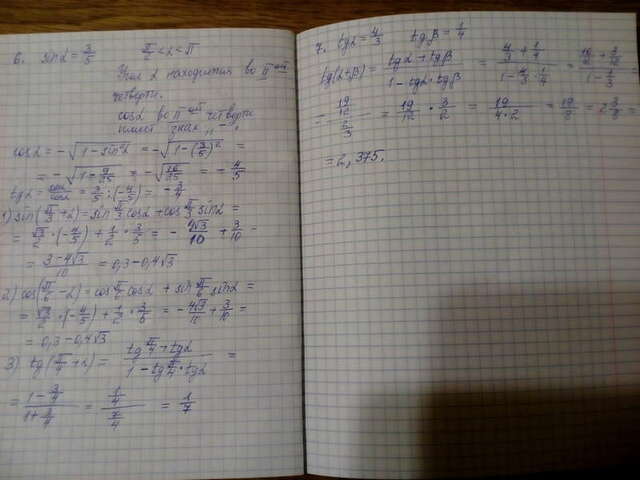 6. sin α = 3/5   π/2 < α < π
Угол α находится во II-ой
четверти.
cos α во II-ой четверти
имеет знак „-".
cos α = -√(1 - sin²α) = -√(1 - (3/5)²) =
= -√(1 - 9/25) = -√(16/25) = -4/5
tg α = sin α/cos α = 3/5 : (-4/5) = -3/4
1) sin(π/3 + α) = sin π/3 cos α + cos π/3 sin α =
= √3/2 · (-4/5) + 1/2 · 3/5 = - 4√3/10 + 3/10 =
= (3 - 4√3)/10 = 0,3 - 0,4√3
2) cos(π/6 - α) = cos π/6 cos α + sin π/6 sin α =
= √3/2 · (-4/5) + 1/2 · 3/5 = - 4√3/10 + 3/10 =
= 0,3 - 0,4√3
3) tg(π/4 + α) = (tg π/4 + tg α)/(1 - tg π/4 · tg α) =
= (1 - 3/4)/(1 + 3/4) = (1/4)/(7/4) = 1/7
7. tg α = 4/3   tg β = 1/4
tg(α+β) = (tg α + tg β)/(1 - tg α · tg β) = (4/3 + 1/4)/(1 - 4/3 · 1/4) = (16/12 + 3/12)/(1 - 1/3)
= (19/12)/(2/3) = 19/12 · 3/2 = 19/(4·2) = 19/8 = 2 3/8 =
= 2,375.